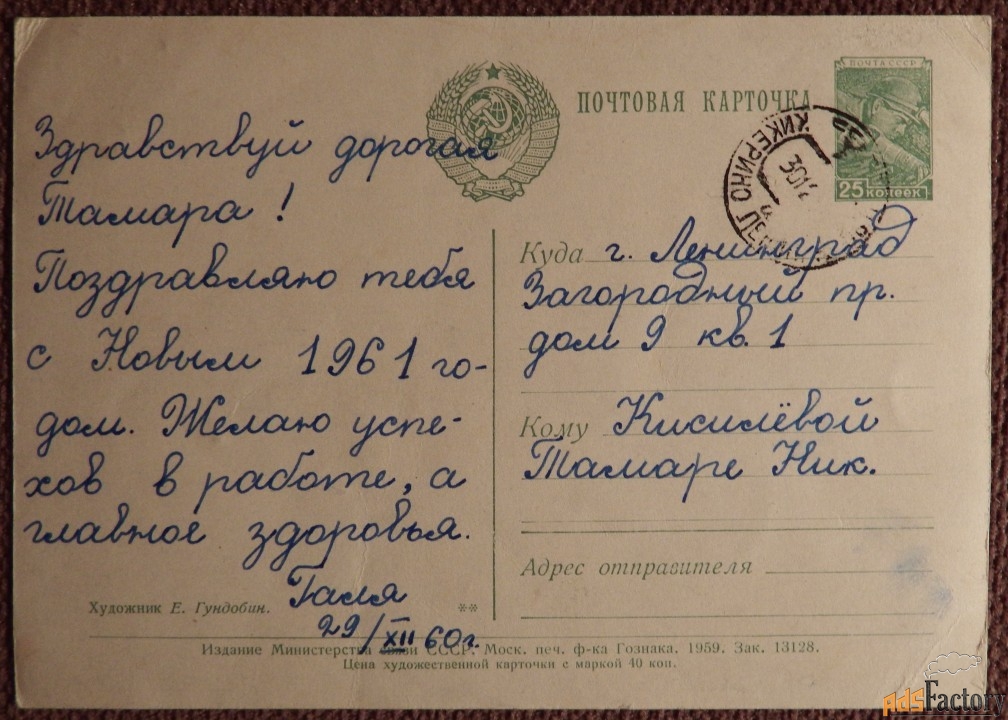 ПОЧТОВАЯ КАРТОЧКА
ПОЧТА СССР
25 КОПЕЕК
КИКЕРИНО
Здравствуй дорогая
Тамара !
Поздравляю тебя
с Новым 1961 го-
дом. Желаю успе-
хов в работе, а
главное здоровья.
Галя
29/XII 60 г.
Куда г. Ленинград
Загородный пр.
дом 9 кв. 1
Кому Кисилёвой
Тамаре Ник.
Адрес отправителя
Художник Е. Гундобин.
**
Издание Министерства связи СССР. Моск. печ. ф-ка Гознака. 1959. Зак. 13128.
Цена художественной карточки с маркой 40 коп.
adsFactory